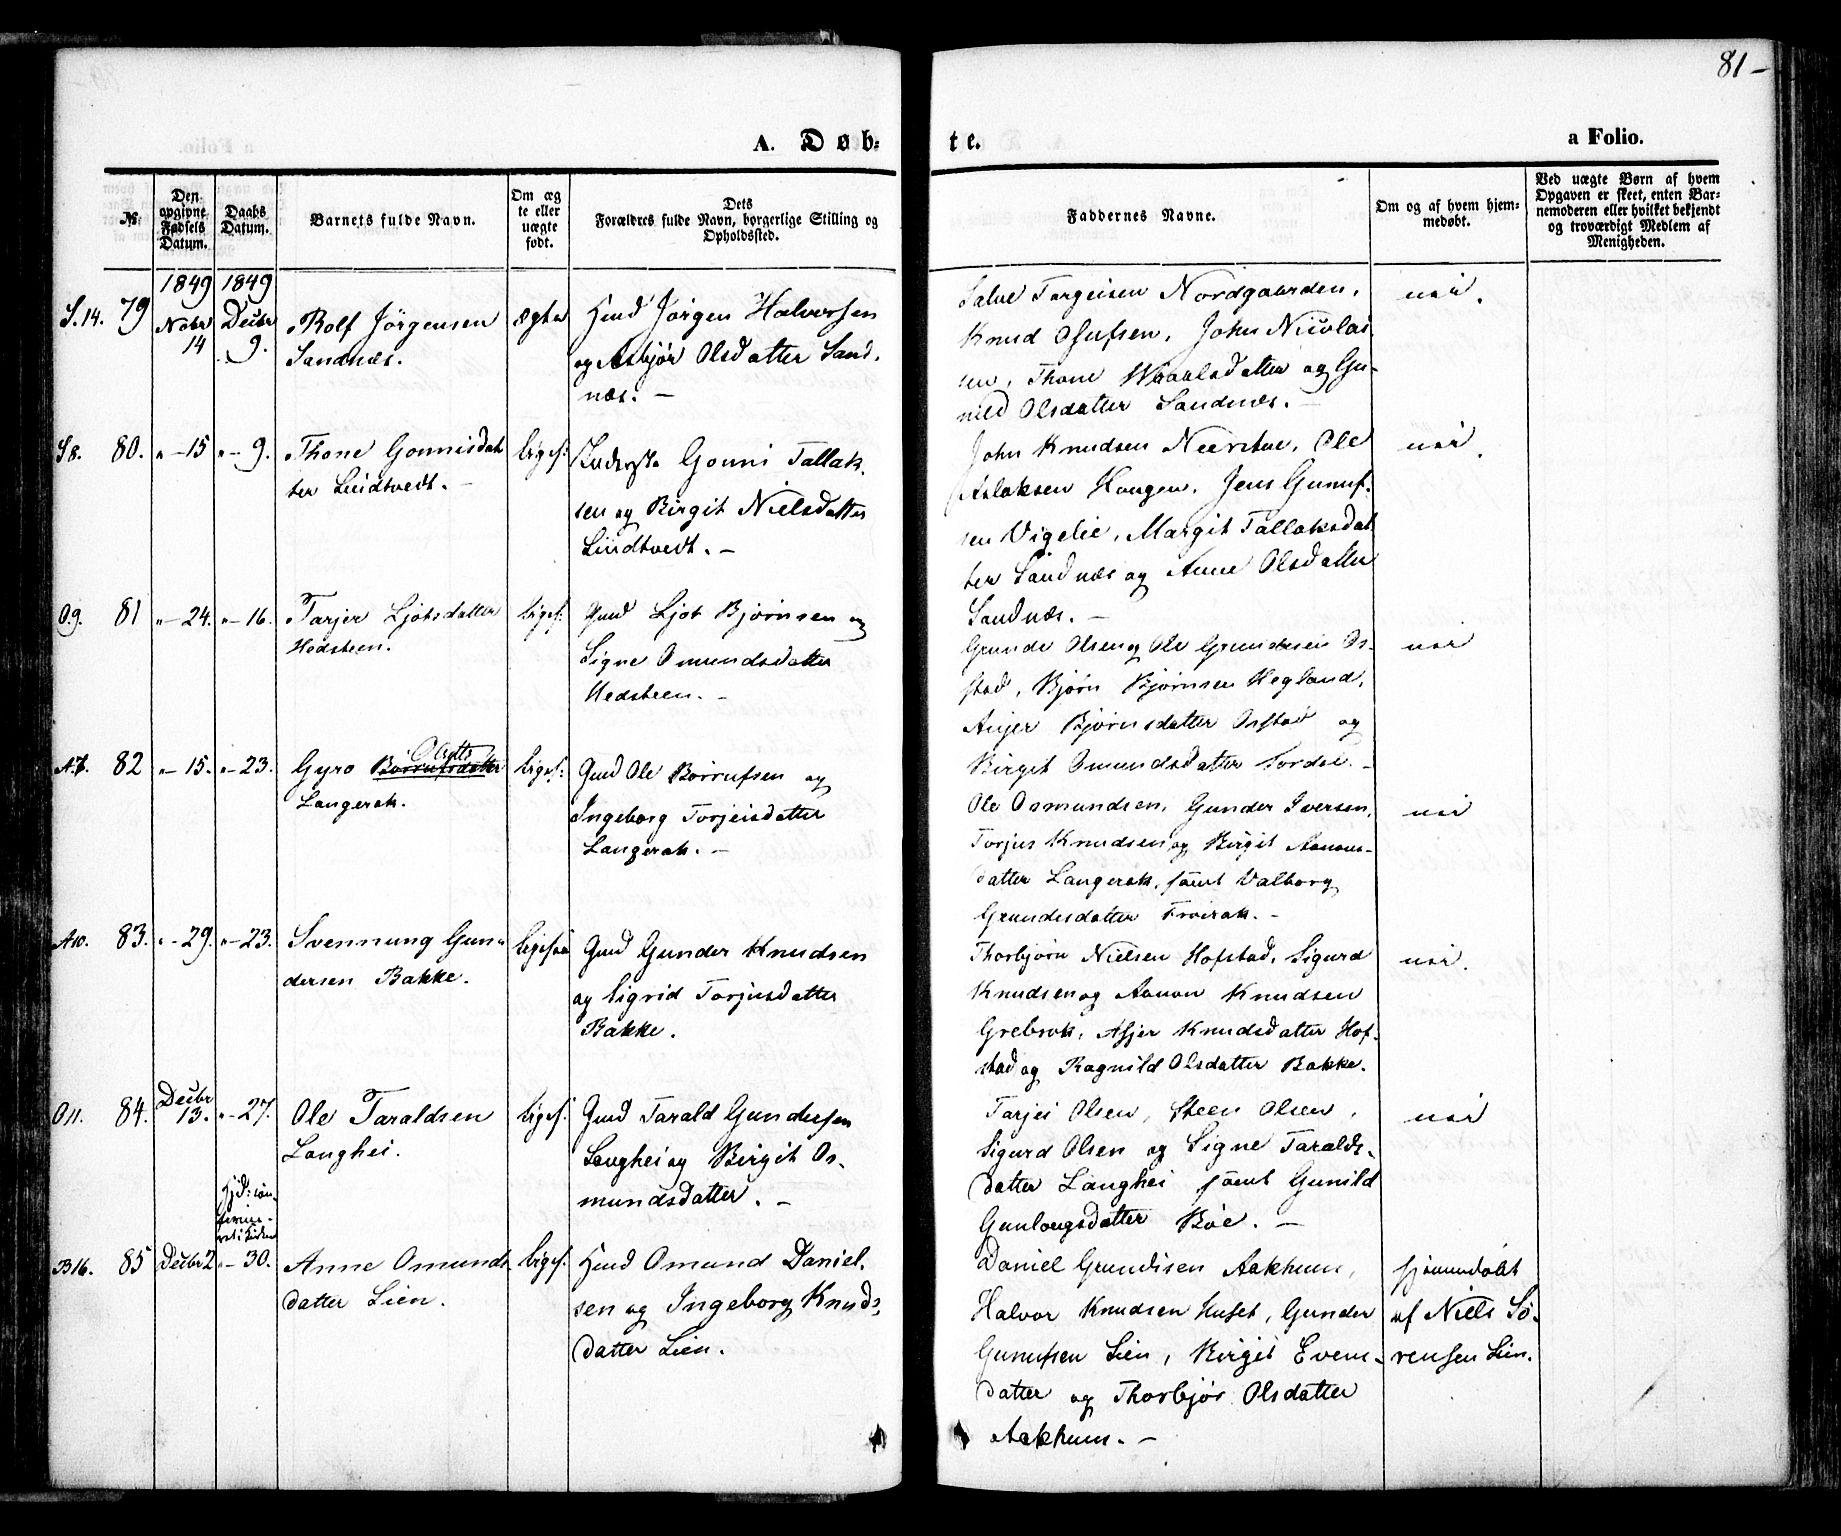 81-
A. Døb-
te.
a Folio.
№
Den
opgivne
Fødsels
Datum.
Daabs
Datum.
Barnets fulde Navn.
Om æg
te eller
uægte
født.
Dets
Forældres fulde Navn, borgerlige Stilling og
Opholdssted.
Faddernes Navne.
Om og af hvem hjem-
medøbt.
Ved uægte Børn af hvem
Opgaven er skeet, enten Bar-
nemoderen eller hvilket bekjendt
og troværdigt Medlem af
Menigheden.
1849
1849
S.14. 79
Nobr
14
Decbr
9.
Rolf Jörgensen
Sandnæs.
ægte
Huusmd Jörgen Halvorsen
og Asbjör Olsdatter Sand-
næs. —
Salve Targeisen Nordgaarden,
Knud Osufsen, John Nicolai
sen, Thone Wraalsdatter og Gu-
nild Olsdatter Sandnæs. —
nei.
S8. 80. " — 15 " — 9.
Thone Gonnisdat
ter Lindtvedt. —
liges:
Inderst Gonni Tallak-
sen og Birgit Nielsdatter
Lindtvedt. —
John Knudsen Neerstue, Ole
Aslaksen Haugen, Jens Gunuf-
sen Vigelie, Margit Tallaksdat
ter Sandnæs og Anne Olsdatter
Sandnæs. —
nei.
O9. 81 " — 24. " — 16.
Tarjer Ljotsdatter
Hedsteen.
ligesf:
Gmd Ljot Björnsen og
Signe Omundsdatter
Hedsteen. —
Grunde Olsen og Ole Grundesen Os-
stad, Björn Björnsen Hegland,
Anjer Björnsdatter Osstad og
Birgit Omundsdatter Sordal. —
nei
A7. 82 " — 15. " — 23.
Gyro Borrufsdatter Olsdtr
Langerak.
ligesf:
Gmd Ole Borrufsen og
Ingeborg Torjeisdatter
Langerak. —
Ole Osmundsen, Gunder Iversen,
Torjus Knudsen og Birgit Aanons-
datter Langerak, samt Valborg
Grundesdatter Frøirak. —
nei
A10. 83. " — 29. " — 23.
Svennung Gun-
dersen Bakke.
ligesaa
Gmd Gunder Knudsen
og Sigrid Torjusdatter
Bakke.
Thorbjörn Nielsen Hofstad, Sigurd
Knudsen og Aanon Knudsen
Grebrok, Asjer Knudsdatter Hof-
stad og Ragnild Olsdatter Bakke.
nei.
O11. 84.
Decbr
13. " — 27.
Ole Taraldsen
Langhei.
ligesf:
Gmd Tarald Gundersen
Langhei og Birgit Os-
mundsdatter. —
Tarjei Olsen, Steen Olsen,
Sigurd Olsen og Signe Taralds-
datter Langhei samt Gunild
Gunlougsdatter Böe. —
nei
B16. 85 Decbr 2 " — 30.
Anne Omunds
datter Lien.
ligesf:
Huusmd Omund Daniel-
sen og Ingeborg Knuds-
datter Lien.
Daniel Grundesen Aakhuus,
Halvor Knudsen Huset, Gunder
Gunufsen Lien, Birgit Evens-
datter og Thorbjör Olsdatter
Aakhuus. —
hjemmedöbt
af Niels Sö-
rensen Lien.